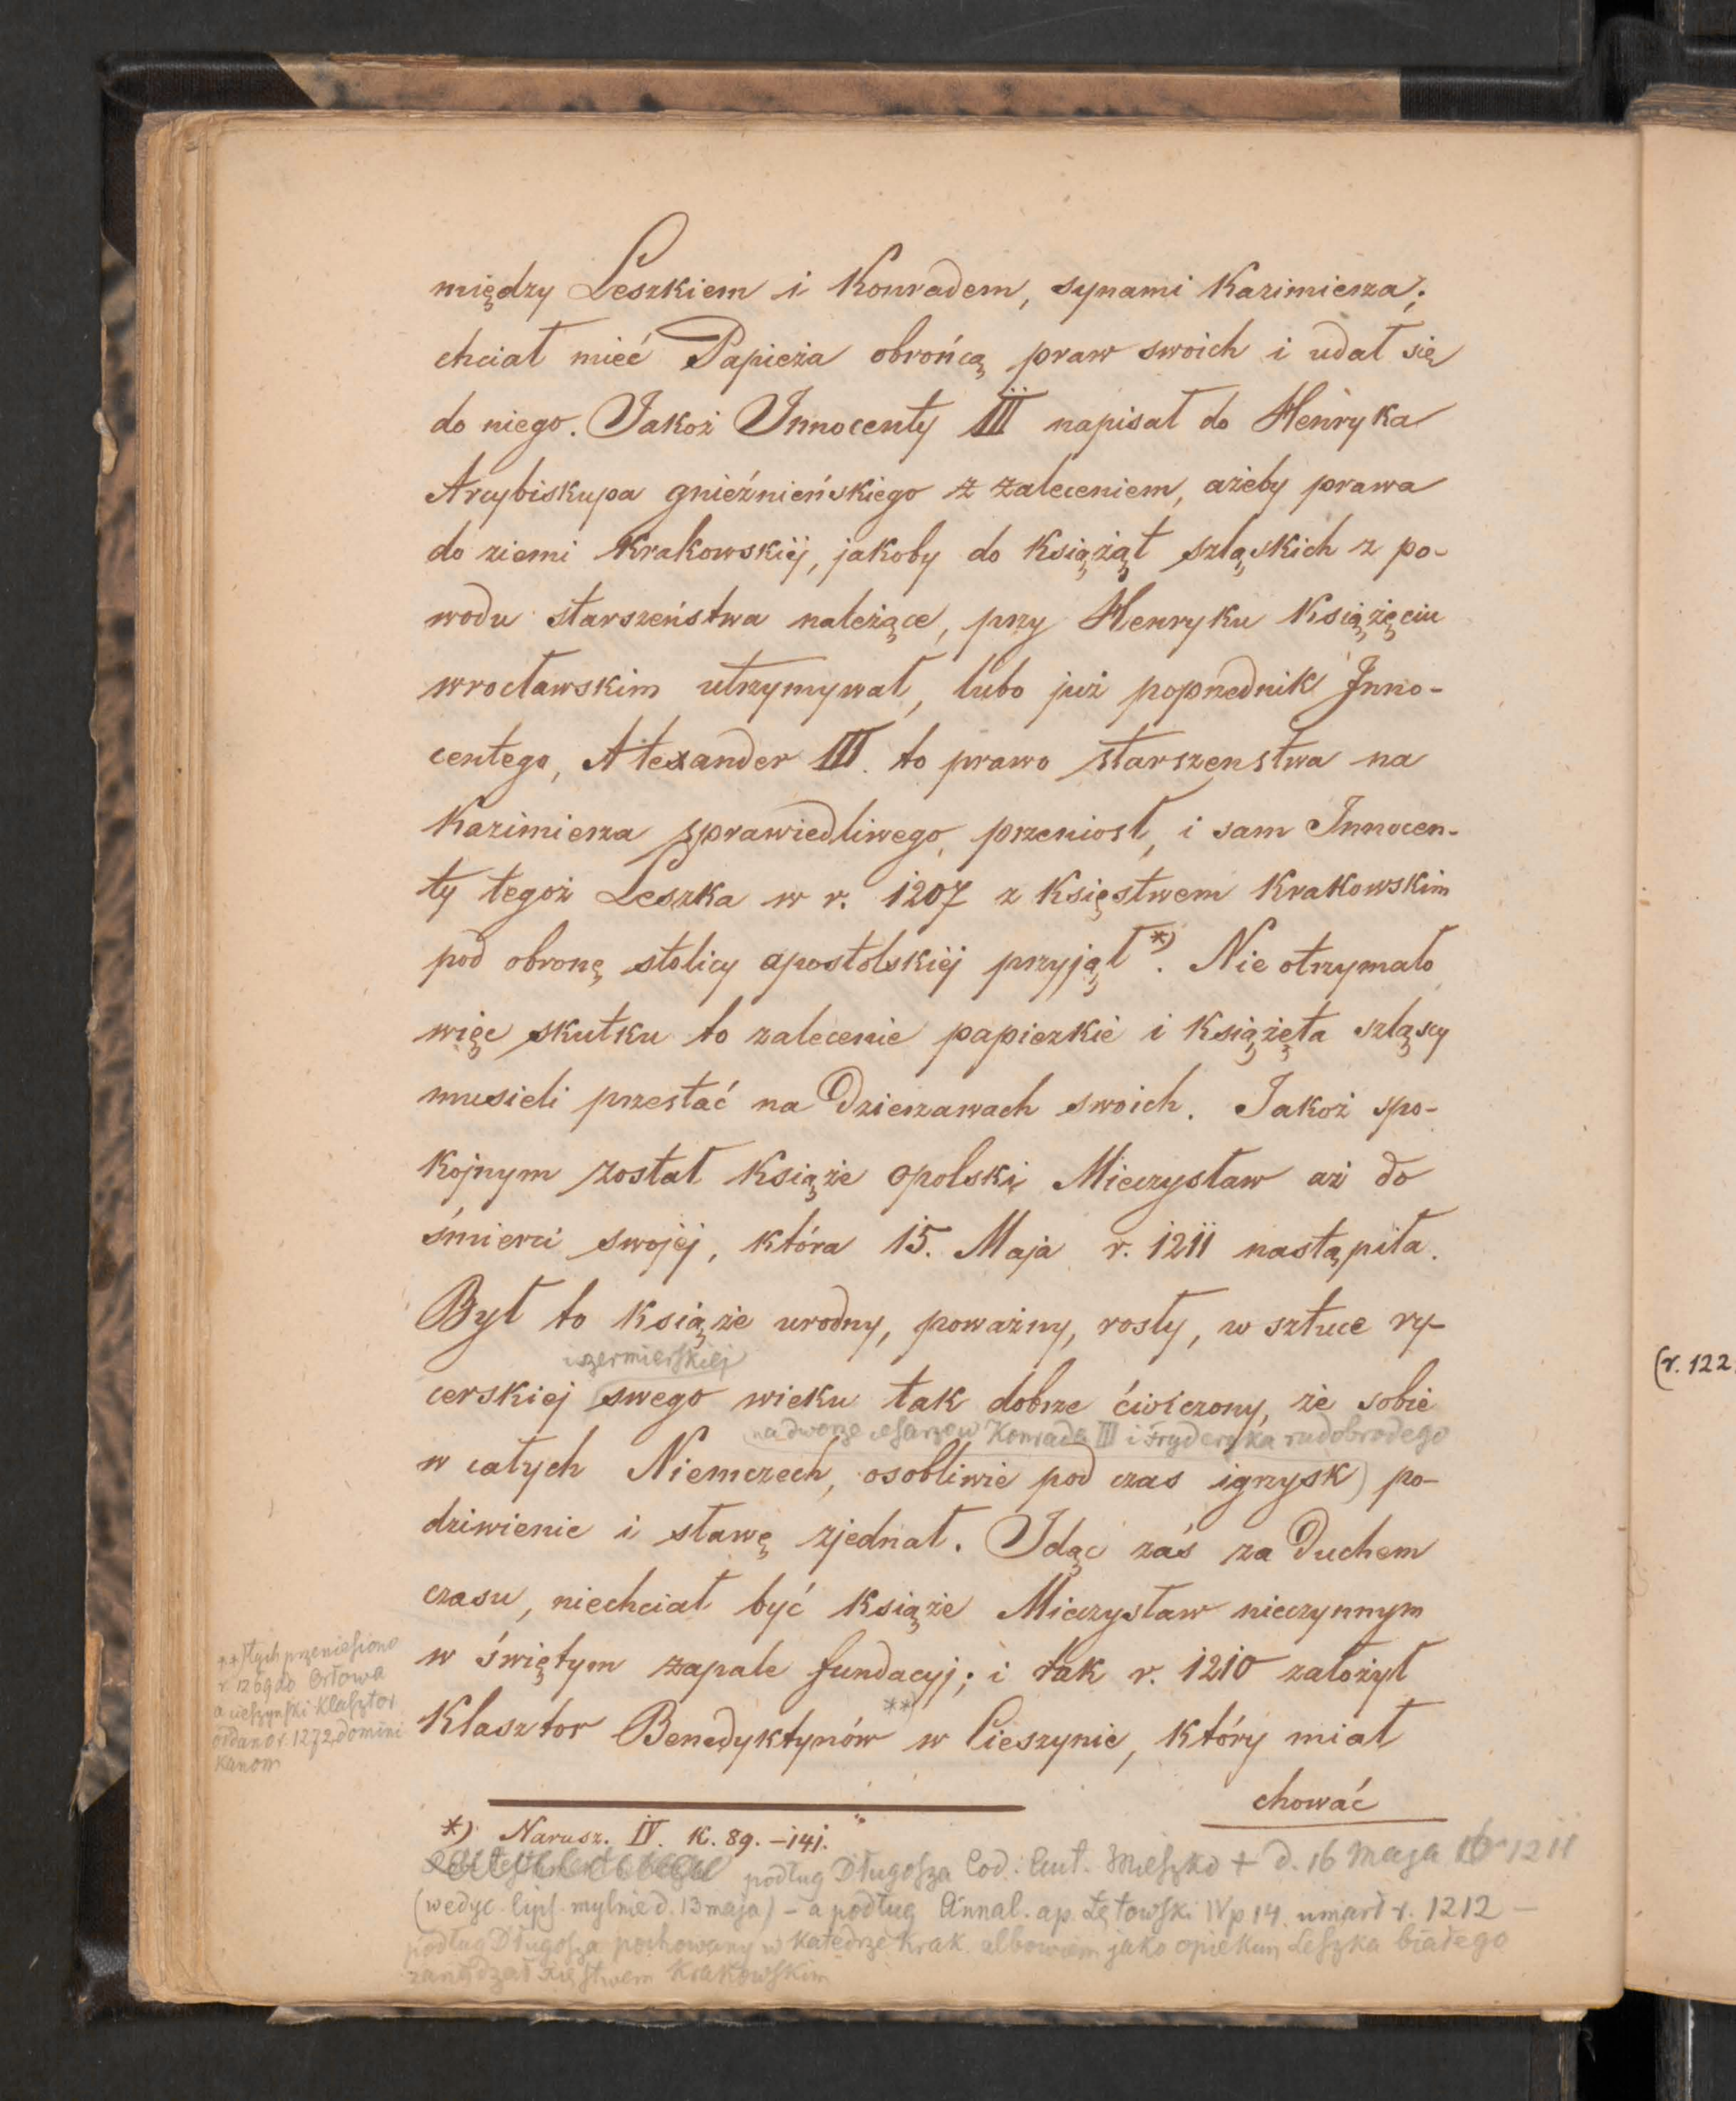 między Leszkiem i Konradem, synami Kazimierza;
chciał mieć Papieża obrońcą praw swoich i udał się
do niego. Jakoż Innocenty III napisał do Henryka
Arcybiskupa gnieźnieńskiego z zaleceniem, ażeby prawa
do ziemi Krakowskiéj, jakoby do książąt szląskich z po-
wodu starszeństwa należące, przy Henryku Książęciu
wrocławskim utrzymywał, lubo już poprzednik Inno-
centego, Alexander III. to prawo starszenstwa na
Kazimierza sprawiedliwego przeniosł, i sam Innocen-
ty tegoż Leszka w r. 1207 z Księstwem Krakowskim
pod obronę stolicy apostolskiéj przyjął *). Nie otrzymało
więc skutku to zalecenie papiezkie i Książęta szląscy
musieli przestać na Dzierzawach swoich. Jakoż spo-
kojnym został Książe opolski Mieczysław aż do
śmierci swojéj, która 15. Maja r. 1211 nastąpiła.
Był to książe urodny, poważny, rosły, w sztuce ry-
i szermierskiej
cerskiej swego wieku tak dobrze ćwiczony, że sobie
na dworze cesarzow Konrada III i Fryderyka rudobrodego
w całych Niemczech, osobliwie pod czas igrzysk) po-
dziwienie i sławę zjednał. Idąc zaś za Duchem
czasu, niechciał być książe Mieczysław nieczynnym
w świętym zapale fundacyj; i tak r. 1210 założył
Klasztor Benedyktynów ** w Cieszynie, który miał
chować
**) tych przeniesiono
r 1269 do Orłowa
a cieszynski Klasztor
oddano r. 1272 domini
kanom
*) Narusz. IV. K. 89. – 141.
podług Długosza Cod. Aut. Mieszko + d. 16 Maja 1211
(w edyc. lips. mylnie d. 13 maja) – a podług Annal. ap. Łętowski IV p 14. umarł r. 1212 –
podług Długosza pochowany w Katedrze Krak. albowiem jako opiekun Leszka białego
zarządzał Księstwem Krakowskim
(r. 122